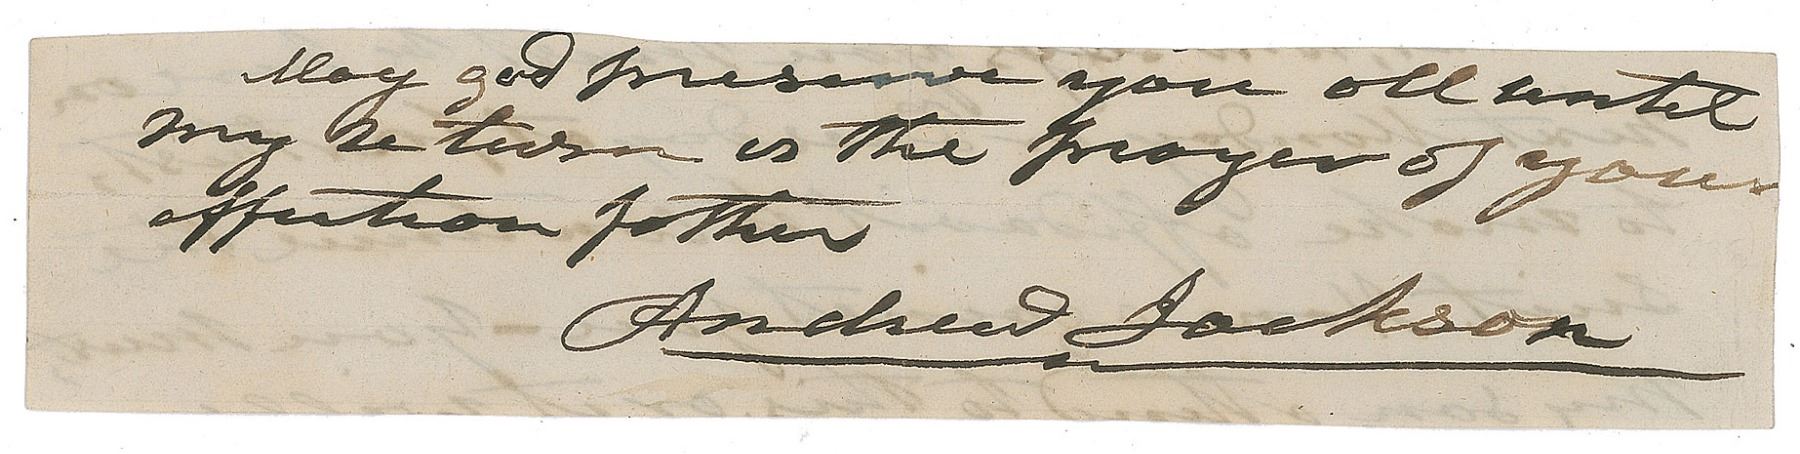 May god preserve you all until
my return is the prayer of your
affection father
Andrew Jackson